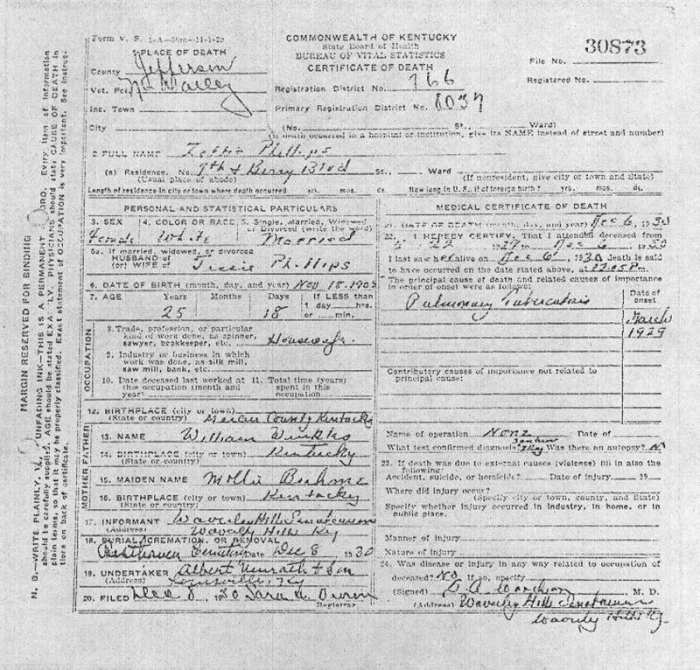 Form V. S.
COMMONWEALTH OF KENTUCKY
State Board of Health
BUREAU OF VITAL STATISTICS
CERTIFICATE OF DEATH
File No. 30873
Registered No.
PLACE OF DEATH
County Jefferson
Vot. Pct.
Inc. Town
City
Registration District No. 766
Primary Registration District No. 8037
(No. St., Ward)
(If death occurred in a hospital or institution, give its NAME instead of street and number)
2. FULL NAME Phillips
(a) Residence. No. 7th & Berry Blvd St., Ward
(Usual place of abode) (If nonresident, give city or town and State)
Length of residence in city or town where death occurred yrs. mos. ds. How long in U. S., if of foreign birth? yrs. mos. ds.
PERSONAL AND STATISTICAL PARTICULARS
3. SEX Female
4. COLOR OR RACE White
5. Single, Married, Widowed or Divorced (write the word) Married
5a. If married, widowed or divorced
HUSBAND of
(or) WIFE of Phillips
6. DATE OF BIRTH (month, day, and year) Nov 18. 190
7. AGE Years 25 Months Days 18 If LESS than 1 day hrs. or min.
OCCUPATION
8. Trade, profession, or particular kind of work done, as spinner, sawyer, bookkeeper, etc. Housewife
9. Industry or business in which work was done, as silk mill, saw mill, bank, etc.
10. Date deceased last worked at this occupation (month and year)
11. Total time (years) spent in this occupation
12. BIRTHPLACE (city or town) (State or country) County Kentucky
FATHER
13. NAME William
14. BIRTHPLACE (city or town) (State or country) Kentucky
MOTHER
15. MAIDEN NAME Mollie
16. BIRTHPLACE (city or town) (State or country) Kentucky
17. INFORMANT Waverley Hills Sanatorium
(Address) Waverly Hills Ky
18. BURIAL, CREMATION, OR REMOVAL
Place Cemetery Date Dec 8 1930
19. UNDERTAKER Albert & Son
(Address) Louisville, Ky
20. FILED Dec 1930 Sara
Registrar
MEDICAL CERTIFICATE OF DEATH
21. DATE OF DEATH (month, day, and year) Dec 6, 1930
22. I HEREBY CERTIFY, That I attended deceased from
22 19 Dec 6, 1930
I last saw her alive on Dec 6, 1930 death is said
to have occurred on the date stated above, at
The principal cause of death and related causes of importance
in order of onset were as follows:
Date of onset
Pulmonary Tuberculosis March 1929
Contributory causes of importance not related to
principal cause:
Name of operation None Date of
What test confirmed diagnosis? Was there an autopsy? No
23. If death was due to external causes (violence) fill in also the
following:
Accident, suicide, or homicide? Date of injury 19
Where did injury occur?
(Specify city or town, county, and State)
Specify whether injury occurred in industry, in home, or in
public place.
Manner of injury
Nature of injury
24. Was disease or injury in any way related to occupation of
deceased? No If so, specify
(Signed) M. D.
(Address) Waverly Hills Sanatorium
Waverly Hills Ky.
MARGIN RESERVED FOR BINDING